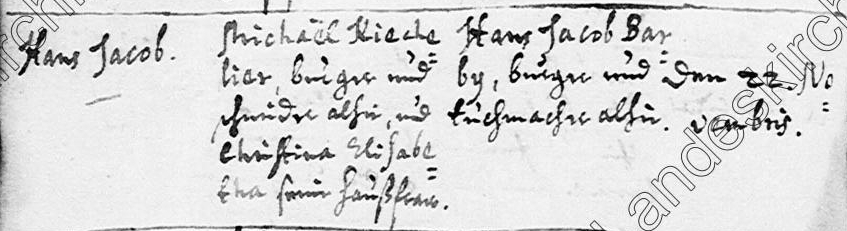 Hans Jacob.
Michaël Kieche=
lier, burger und
schneider alhir, und
Christina Elisabe=
tha seine haußfraw.
Hans Jacob Bar=
by, burger und
tuchmacher alhir.
Den 22. No=
vembris.